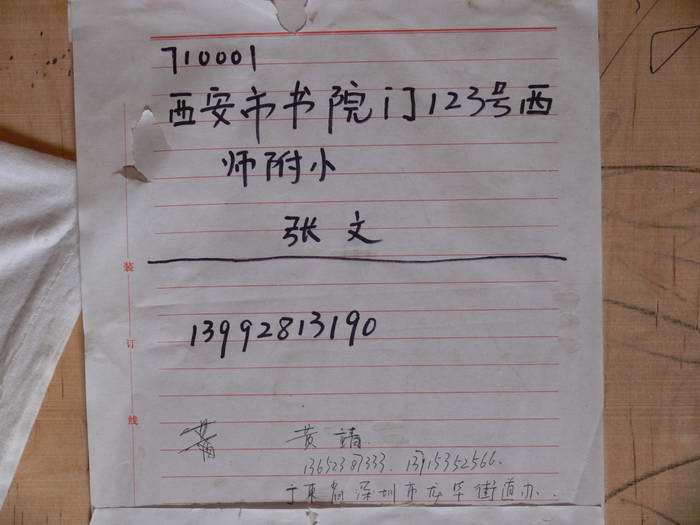 710001
西安市书院门123号西
师附小
张文
装
订
线
13992813190
黄靖
广东省深圳市龙华街道办